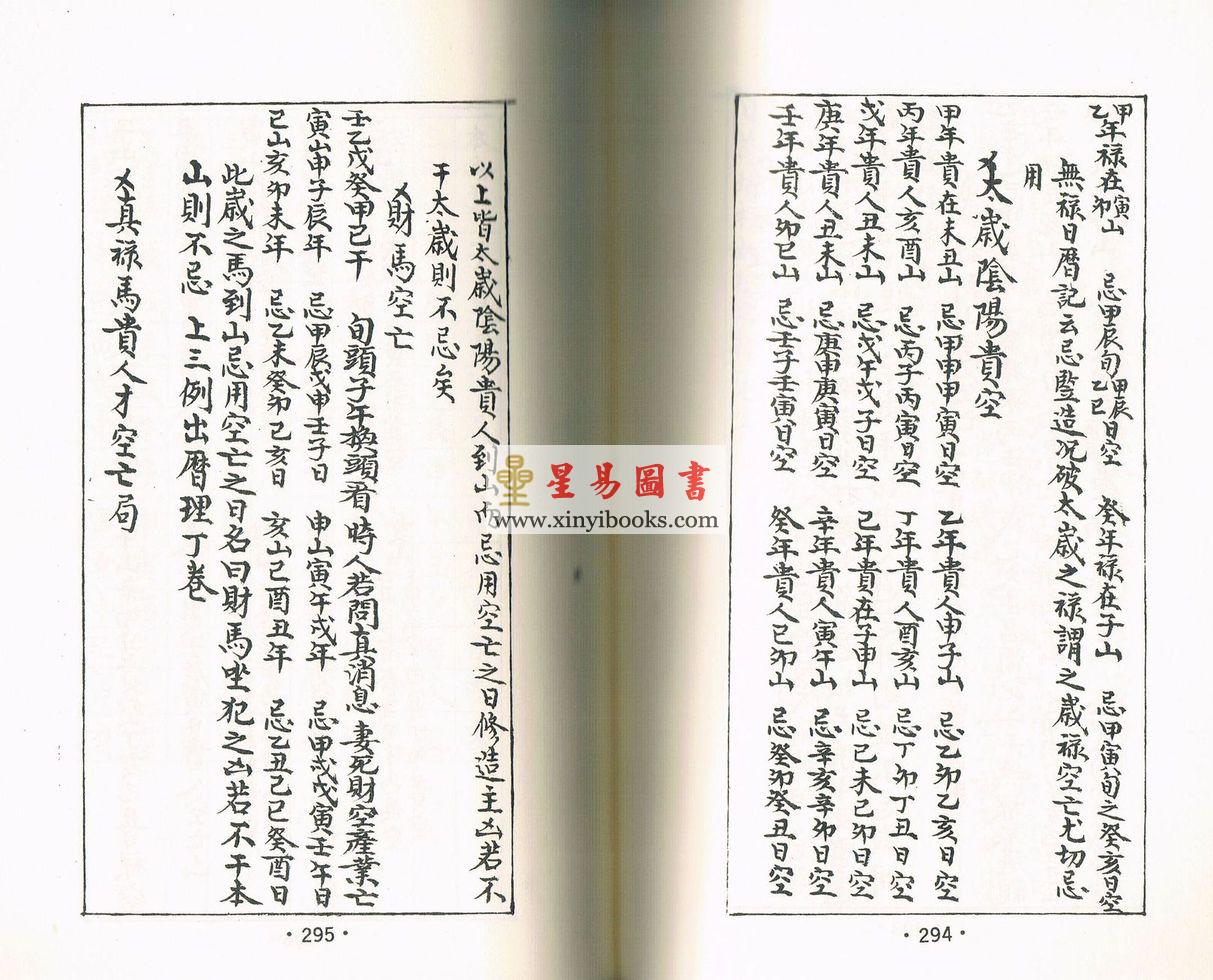 甲乙年禄在寅卯山 忌甲辰旬甲辰乙巳日空 癸年禄在子山 忌甲寅旬之癸亥日空
無禄日暦記云忌豎造况破太歲之禄謂之歲禄空亡尤切忌
用
太歲陰陽貴空
甲年貴在未丑山 忌甲申甲寅日空 乙年貴人申子山 忌乙卯乙亥日空
丙年貴人亥酉山 忌丙子丙寅日空 丁年貴人酉亥山 忌丁卯丁丑日空
戊年貴人丑未山 忌戊午戊子日空 己年貴在子申山 忌己未己卯日空
庚年貴人丑未山 忌庚申庚寅日空 辛年貴人寅午山 忌辛亥辛卯日空
壬年貴人卯巳山 忌壬子壬寅日空 癸年貴人巳卯山 忌癸卯癸丑日空
·294·
以上皆太歲陰陽貴人到山 忌用空亡之日修造主凶若不
干太歲則不忌矣
財馬空亡
壬乙戊癸甲己干 旬頭子午換頭看 時人若問真消息 妻死財空產業亡
寅山申子辰年 忌甲辰戊申壬子日 申山寅午戌年 忌甲戌戊寅壬午日
巳山亥卯未年 忌乙未癸卯己亥日 亥山巳酉丑年 忌乙丑己巳癸酉日
此歲之馬到山忌用空亡之日名曰財馬坐犯之凶若不干本
山則不忌 上三例出暦理丁卷
真禄馬貴人才空亡局
·295·
星易圖書
www.xinyibooks.com